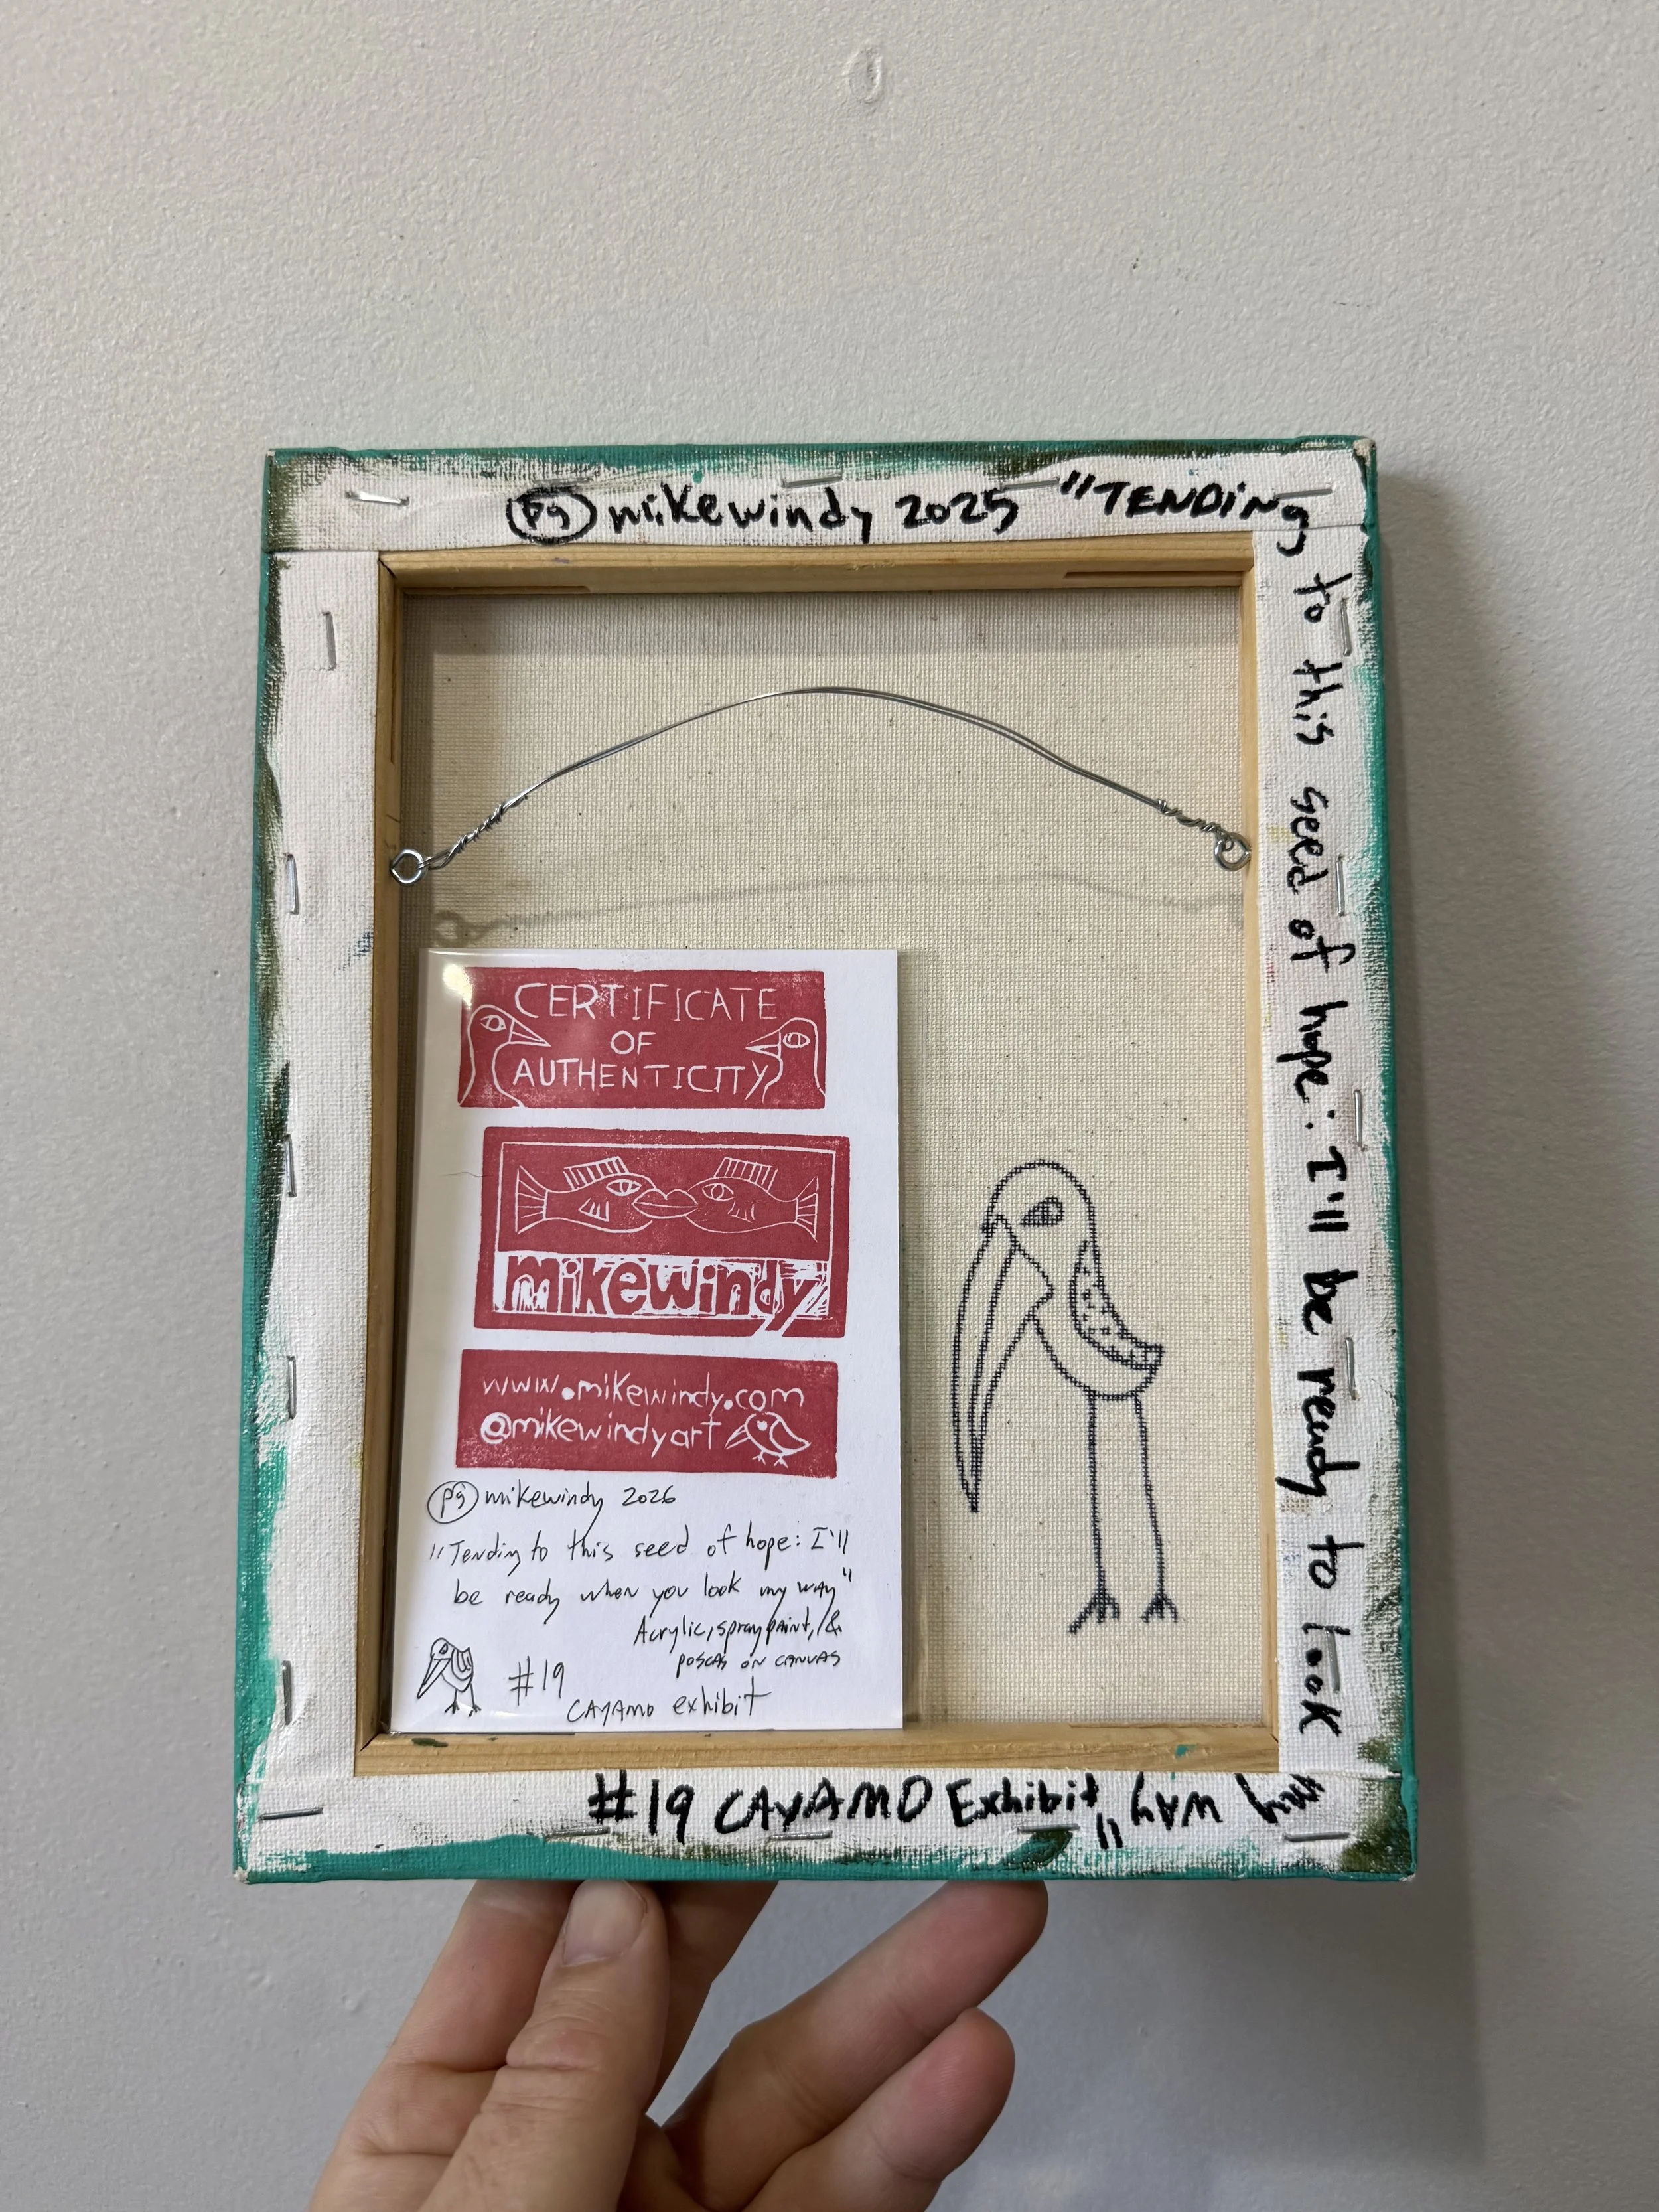 pg mikewindy 2025 "TENDING
to this seed of hope: I'll be ready to look
my WAy"
#19 CAYAMO Exhibit
CERTIFICATE
OF
AUTHENTICITY
mikewindy
www.mikewindy.com
@mikewindyart
pg mikewindy 2026
"Tending to this seed of hope: I'll
be ready when you look my way"
Acrylic, spray paint, &
poscas on canvas
#19
CAYAMO exhibit